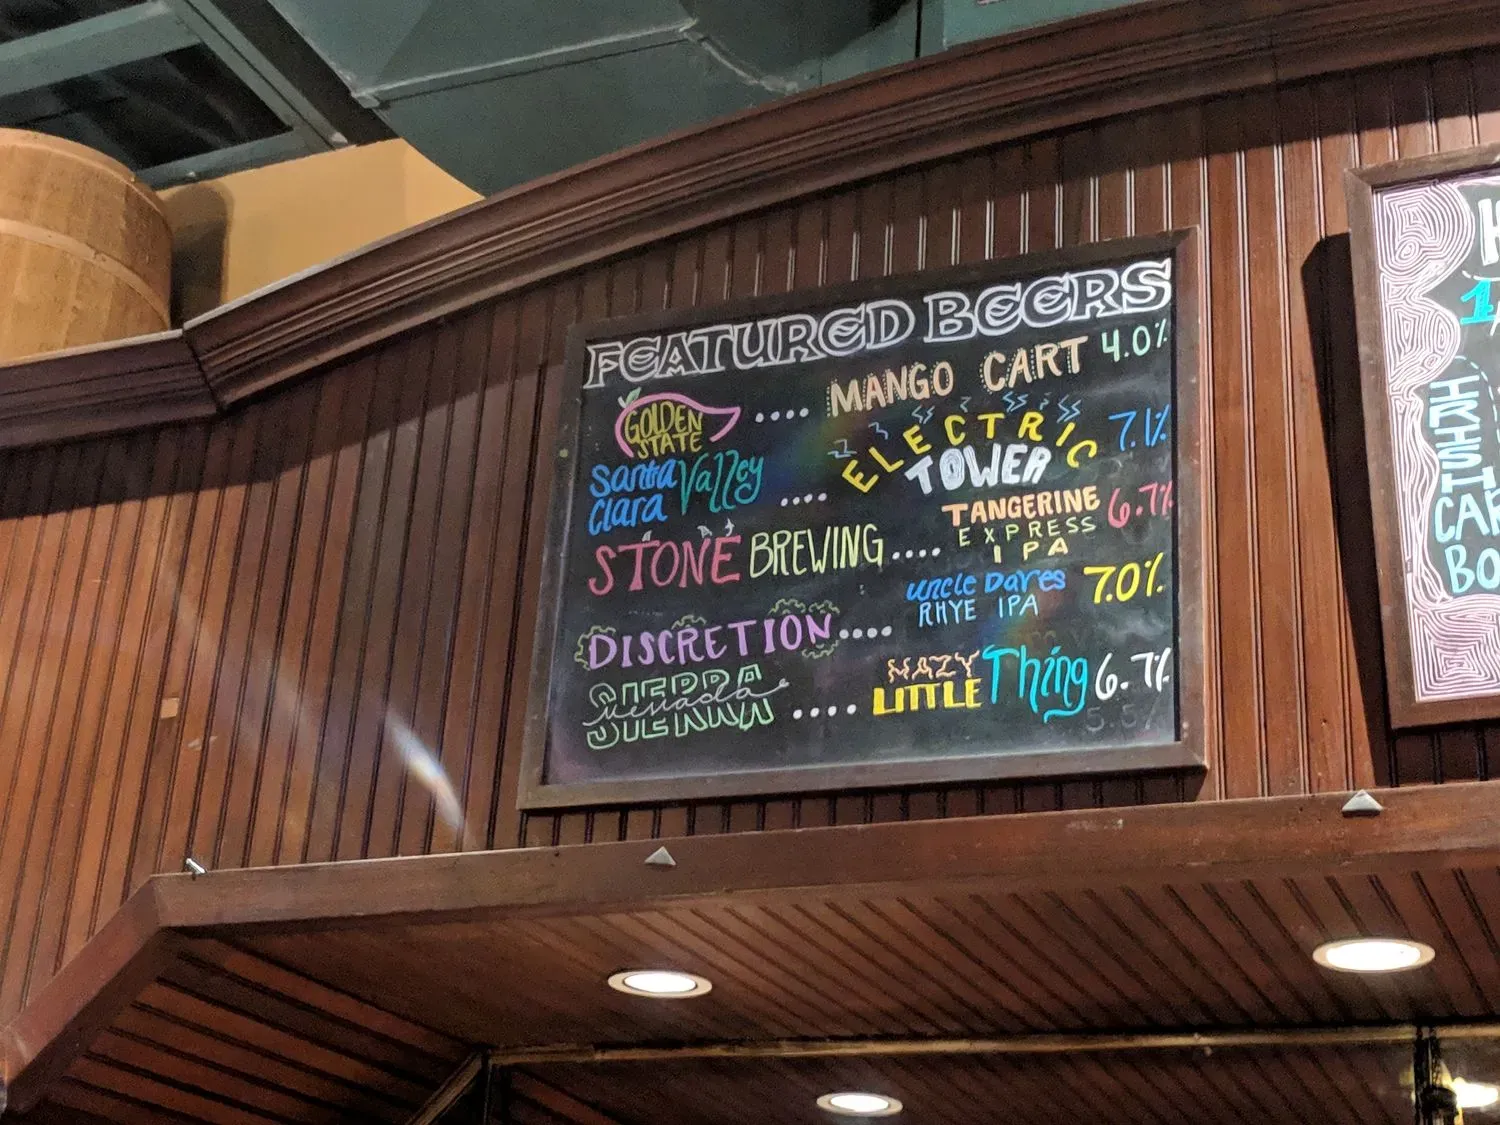 FEATURED BEERS
GOLDEN STATE .... MANGO CART 4.0%
Santa Clara Valley .... ELECTRIC TOWER 7.1%
STONE BREWING .... TANGERINE EXPRESS IPA 6.7%
DISCRETION .... Uncle Daves RHYE IPA 7.0%
SIERRA nevada .... HAZY LITTLE Thing 6.7%
5.5%
H
1/
IRISH
CAR
BO